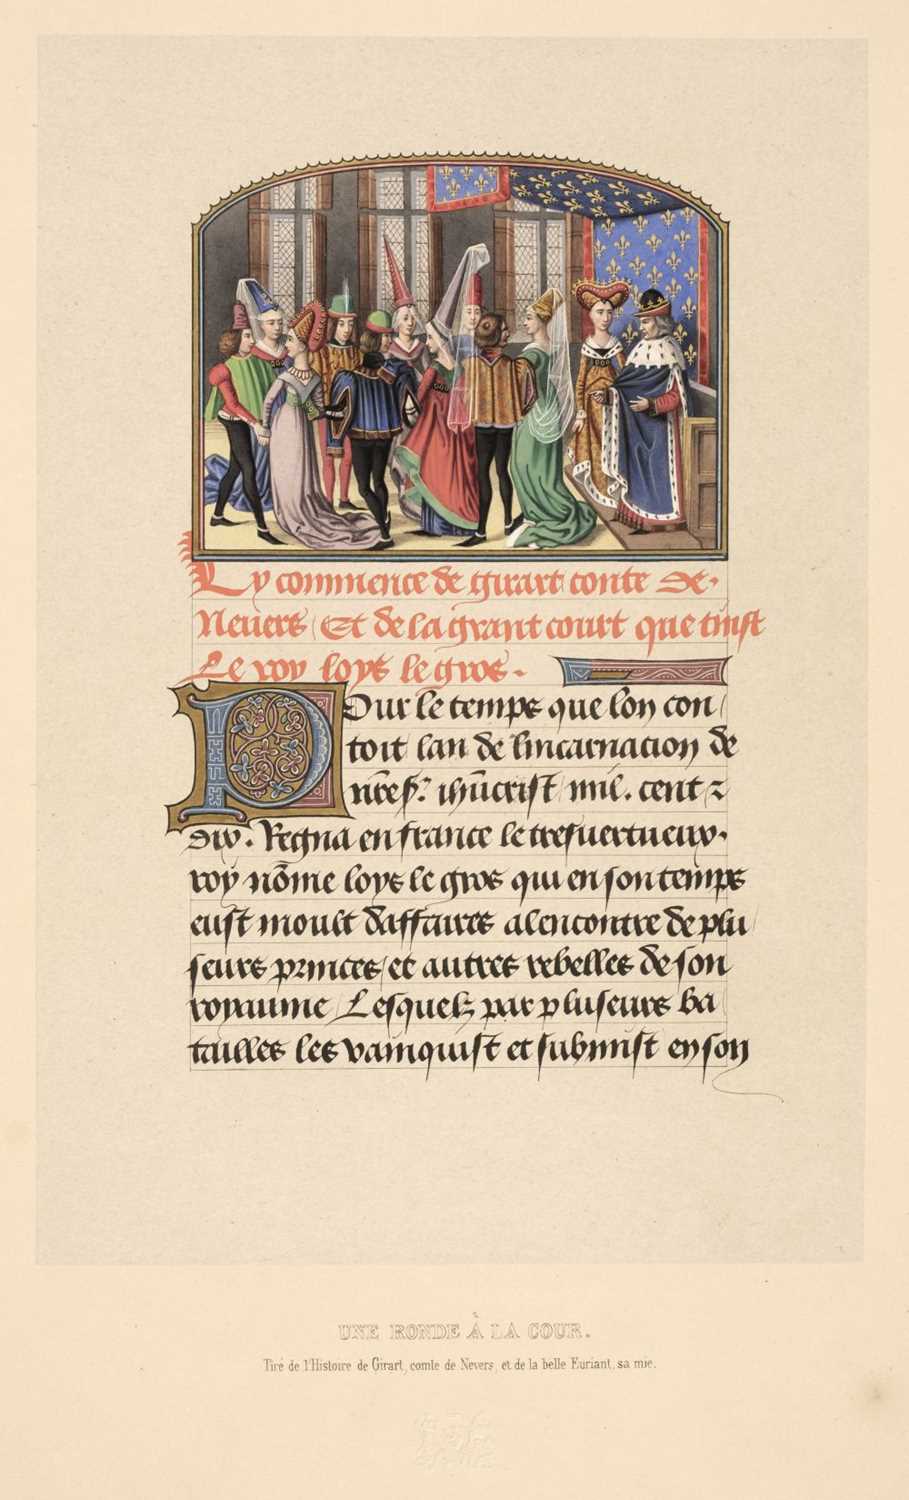 Cy commence de girart conte de.
Nevers Et de la grant court que tinst
Le roy loys le gros.
Pour le temps que lon con
toit lan de lincarnacion de
nr̄e sr. ihūcrist mil. cent ⁊
dix. Regna en france le tresvertueux.
roy nōme loys le gros qui en son temps
eust moult daffaires alencontre de plu
seurs princes et autres rebelles de son
royaume Lesquelz par pluseurs ba
tailles les vainquist et submist en son
UNE RONDE À LA COUR.
Tiré de l'Histoire de Girart, comte de Nevers, et de la belle Euriant, sa mie.